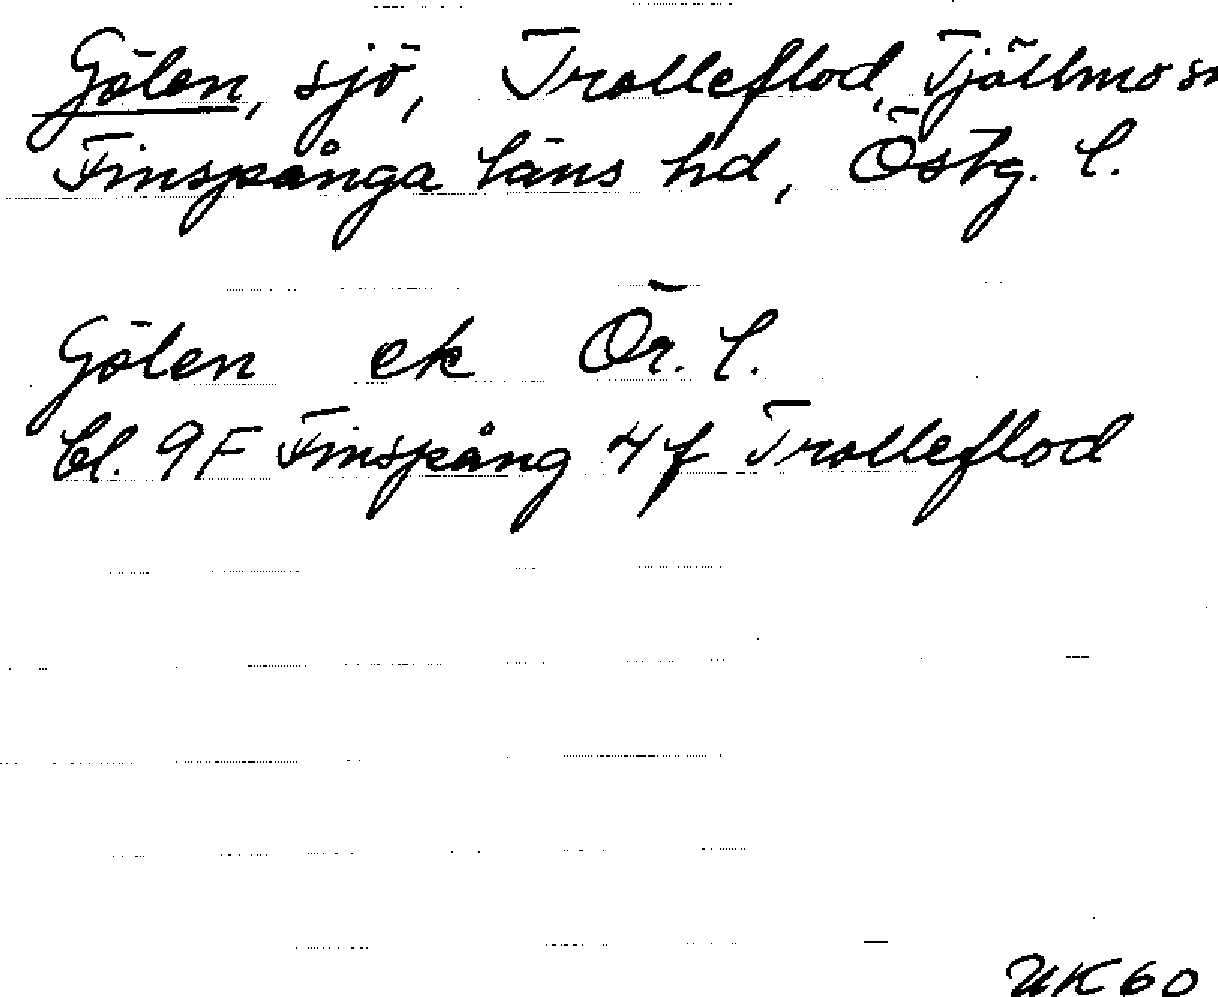 Gölen, sjö, Trolleflod, Tjällmo sn
Finspånga läns hd, Östg. l.
Gölen ek Ör. l.
bl. 9F Finspång 4f Trolleflod
UK 60